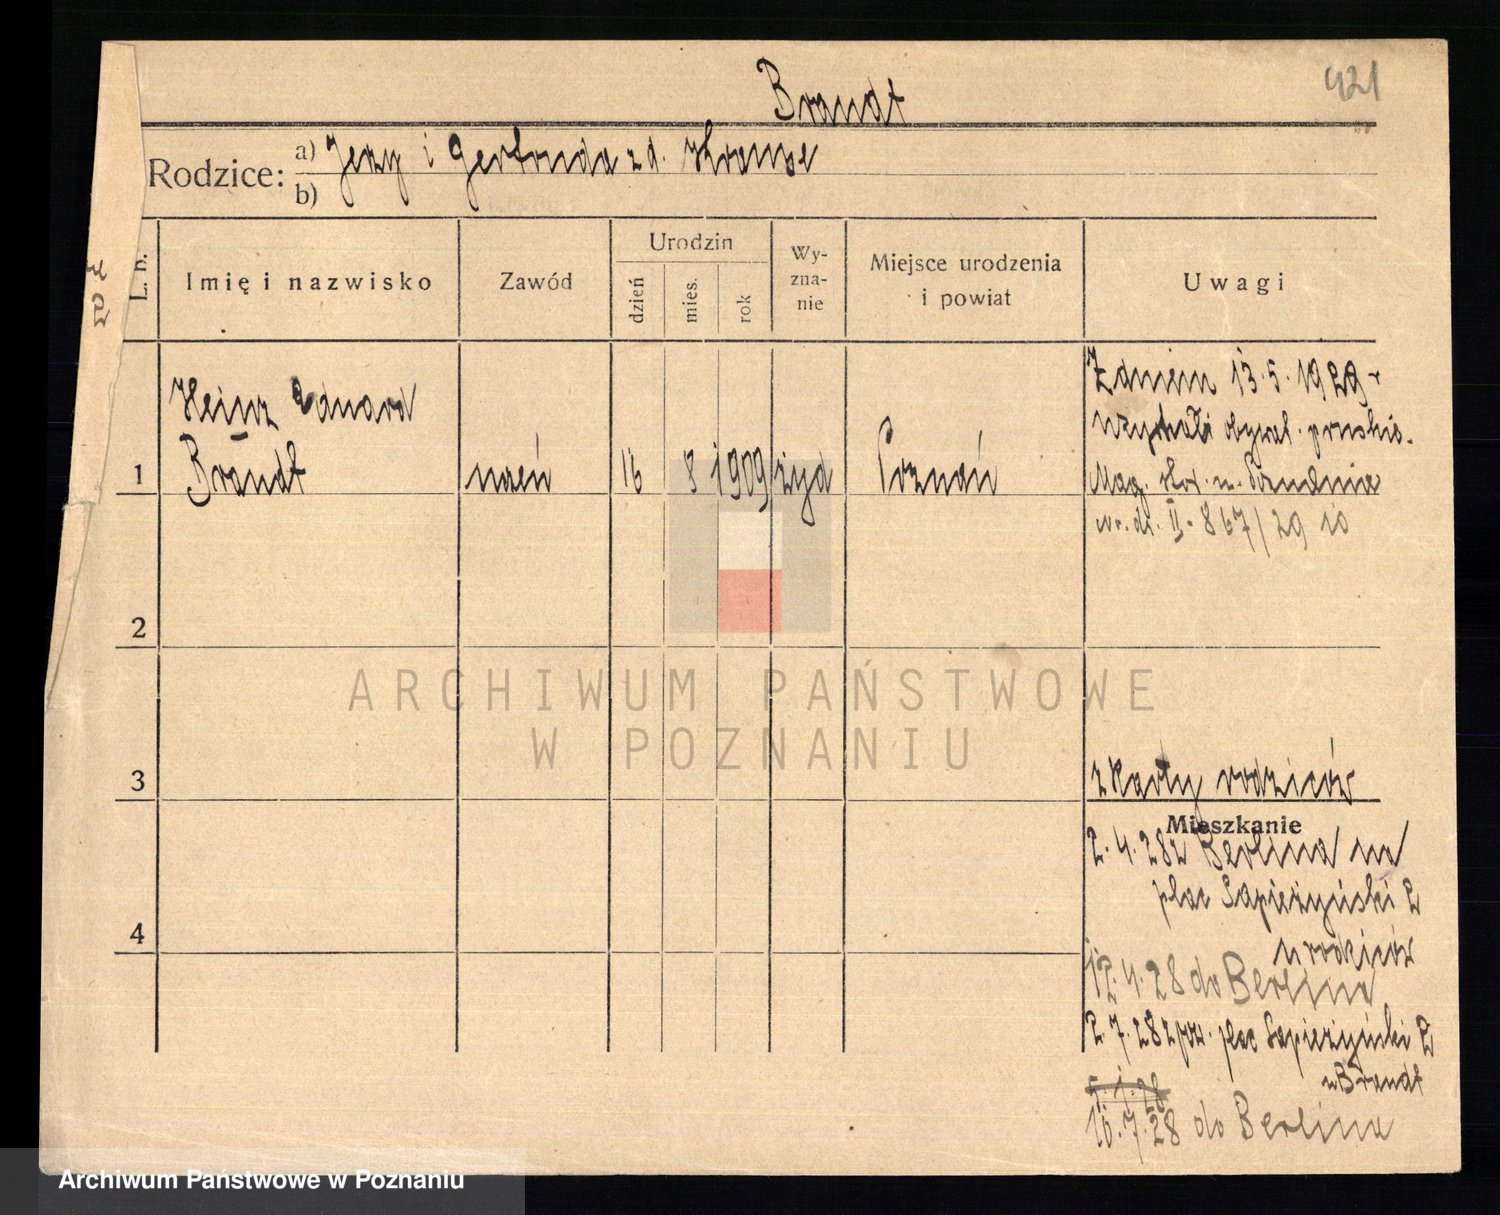 421
Brandt
Rodzice: a) Jerzy i Gertruda z d. Krause
b)
L. b.
Imię i nazwisko
Zawód
Urodzin
dzień
mies.
rok
Wy-
zna-
nie
Miejsce urodzenia
i powiat
Uwagi
Heinz Eduard
Brandt
1
uczeń
16
8
1909
żyd
Poznań
Z dniem 13.5.1929
uzyskał obywat. pruskie.
Mag. w. Poznania
nr. dz. II. 867/29
2
3
z karty rodziców
Mieszkanie
2.4.28 z Berlina na
plac Sapieżyński 2
u rodziców
4
12.4.28 do Berlina
2.7.28 plac Sapieżyński 2
u Brandt
16.7.28 do Berlina
ARCHIWUM PAŃSTWOWE
W POZNANIU
Archiwum Państwowe w Poznaniu